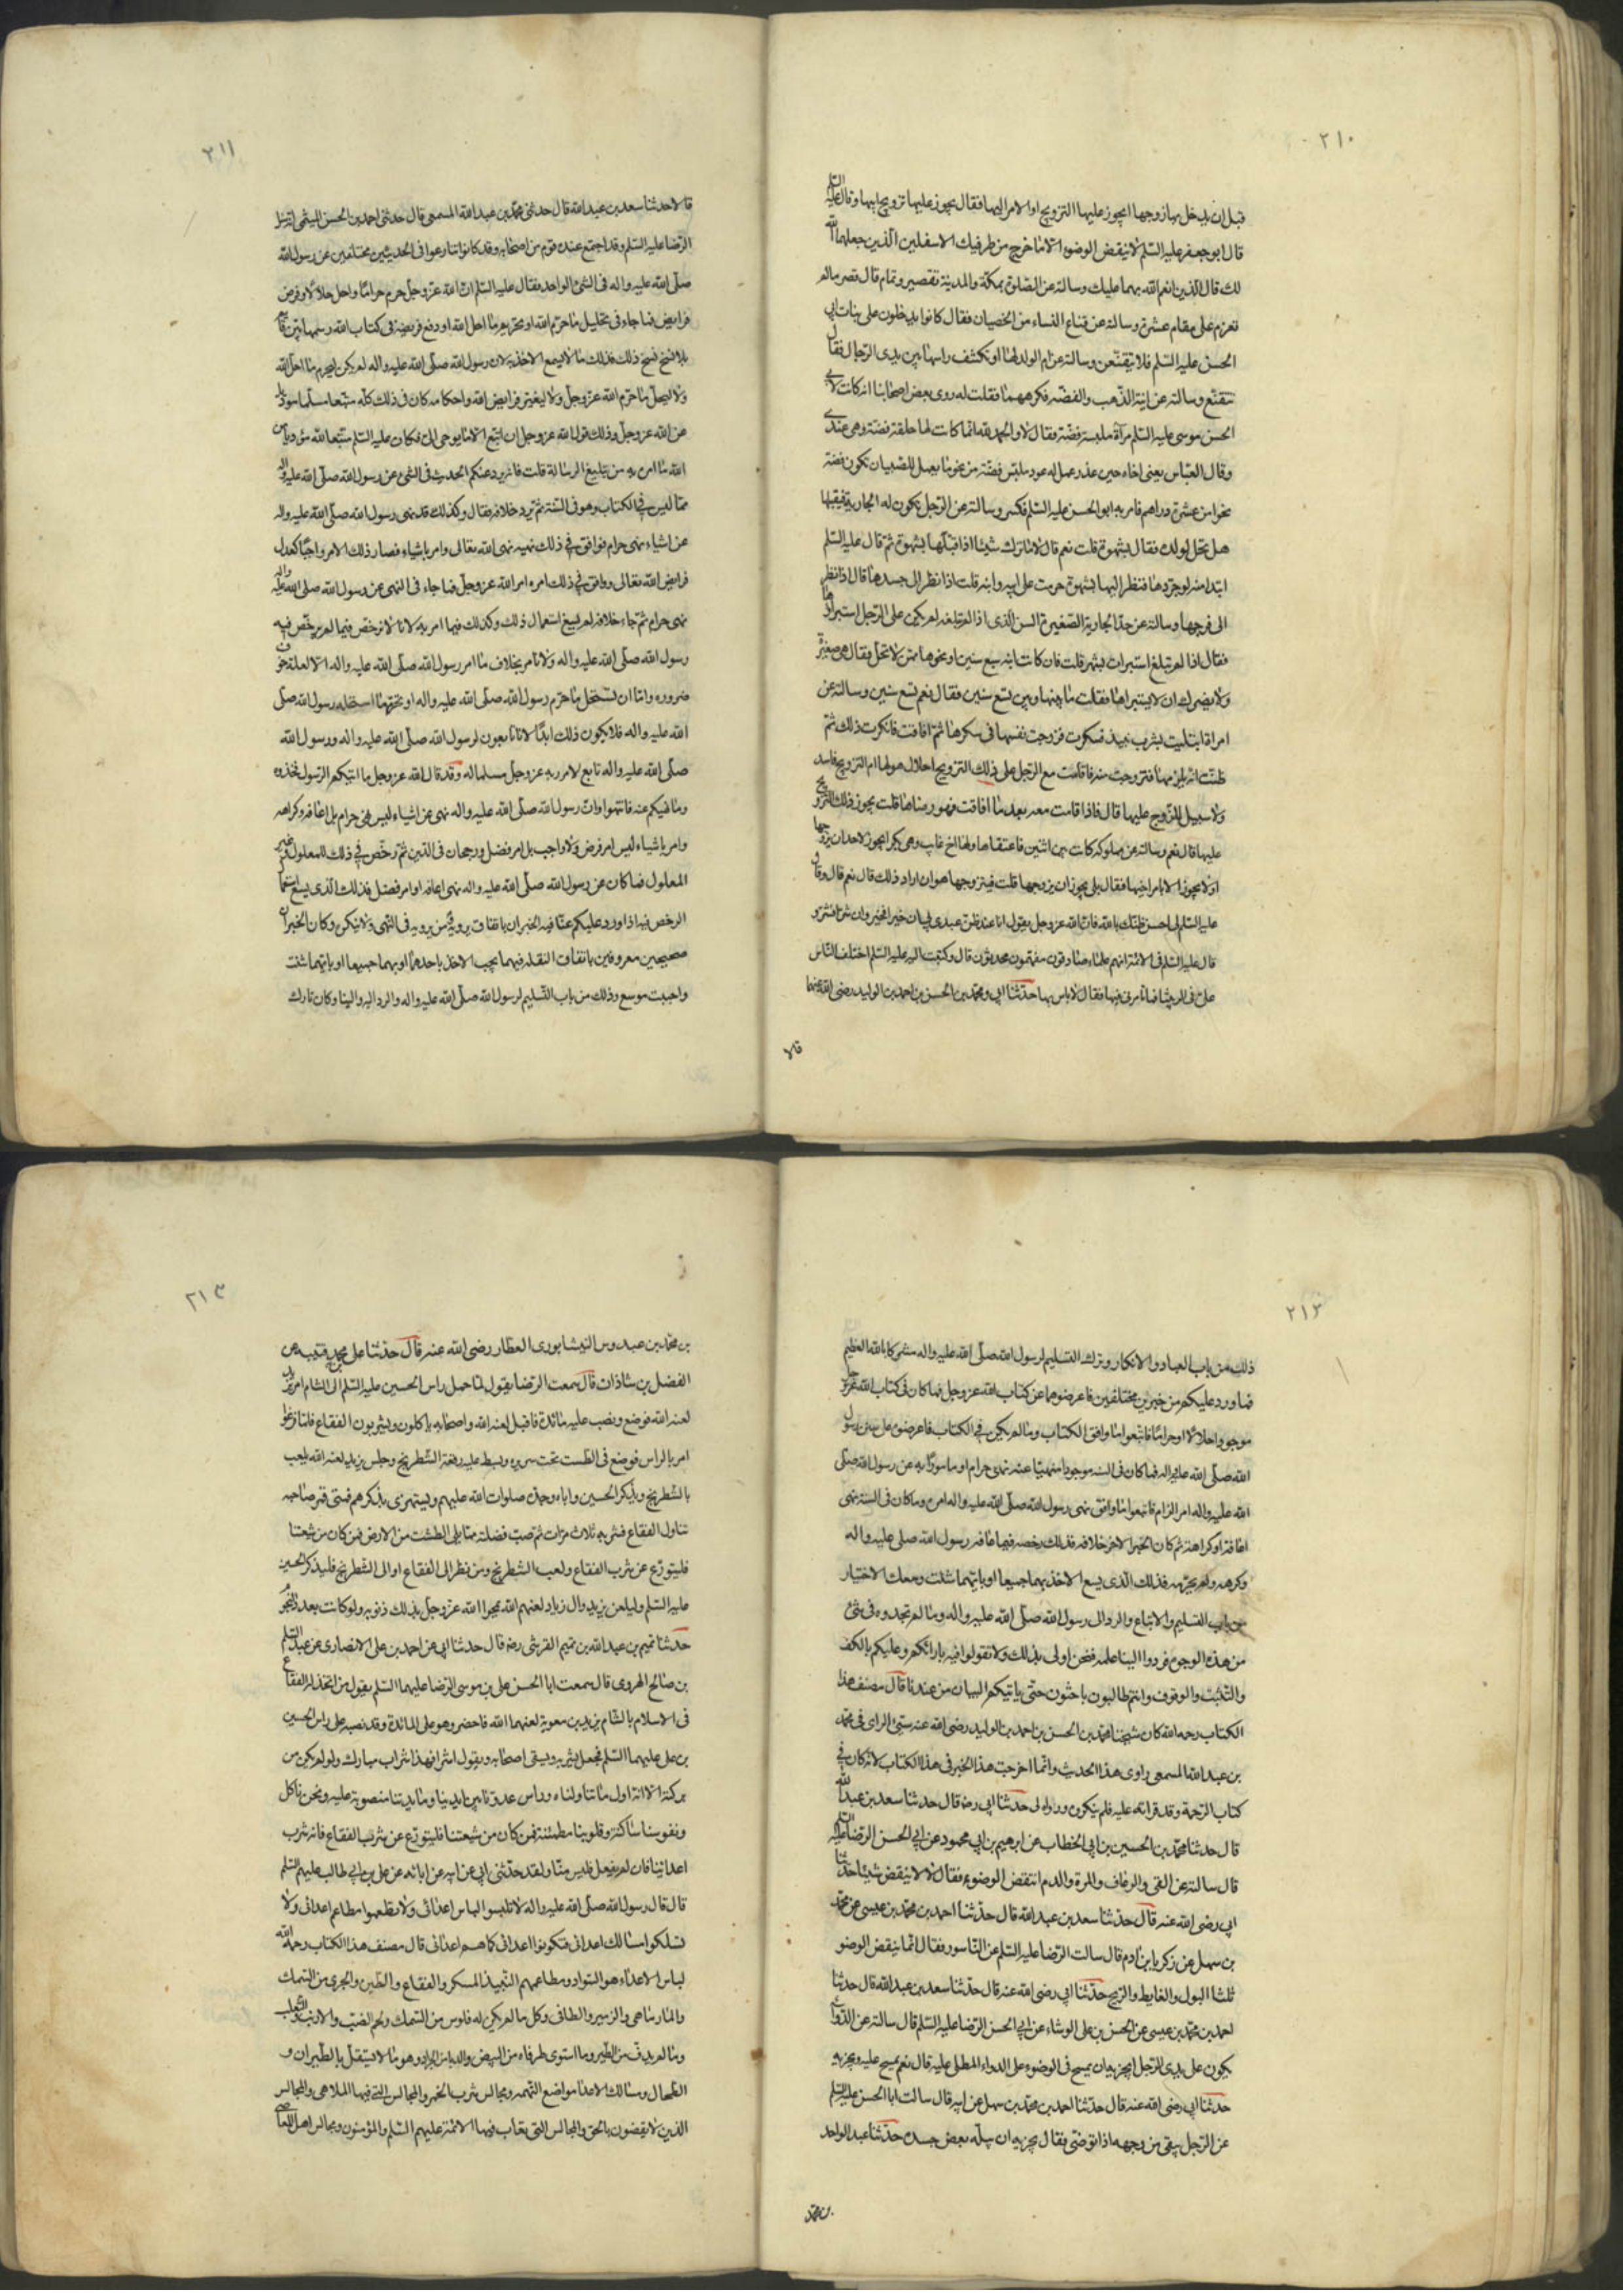 ٢١٠
قبل ان يدخل بها زوجها ايجوز عليها التزويج او الامر اليها فقال يجوز عليها تزويج ابيها وقال عليه السلم
قال ابو جعفر عليه السلم لا ينقض الوضوء الا ما خرج من طرفيك الاسفلين الذين جعلهما الله
لك قال الذين انعم الله بهما عليك وسالته عن الصلوة بمكة والمدينة تقصير وتمام قال قصر ما لم
تعزم على مقام عشرة وسالته عن قناع النساء من الخصيان فقال كانوا يدخلون على بنات ابي
الحسن عليه السلم فلا يتقنعن وسالته عن ام الولد لها ان تكشف راسها بين يدي الرجال فقال
تتقنع وسالته عن انية الذهب والفضة فكرههما فقلت له روى بعض اصحابنا انه كانت لابي
الحسن موسى عليه السلم مرآة ملبسة فضة فقال لا والحمد لله انما كانت لها حلقة فضة وهي عندي
وقال العباس يعني اخاه حين عذر عمل له عود ملبس فضة من نحو ما يعمل للصبيان تكون فضته
نحوا من عشرة دراهم فامر به ابو الحسن عليه السلم فكسر وسالته عن الرجل يكون له الجارية فيقبلها
هل تحل لولده فقال بشهوة قلت نعم قال لا ما ترك شيئا اذا قبلها بشهوة ثم قال عليه السلم
ابتداء منه لو جردها فنظر اليها بشهوة حرمت على ابيه وابنه قلت اذا نظر الى جسدها قال اذا نظر
الى فرجها وسالته عن حد الجارية الصغيرة السن الذي اذا لم تبلغه لم يكن على الرجل استبراؤها
فقال اذا لم تبلغ استبرات بشهر قلت فان كانت ابنه سبع سنين او نحوها ممن لا تحمل فقال هي صغيرة
ولا يضرك ان لا يستبراها فقلت ما بينها وبين تسع سنين فقال نعم تسع سنين وسالته عن
امراة ابتليت بشرب نبيذ فسكرت فزوجت نفسها في سكرها ثم افاقت فانكرت ذلك ثم
ظنت انه يلزمها فتزوجت منه فاقامت مع الرجل على ذلك التزويج احلال هو لها ام التزويج فاسد
ولا سبيل للزوج عليها قال فاذا اقامت معه بعد ما افاقت فهو رضاها قلت يجوز ذلك التزويج
عليها قال نعم وسالته عن مملوكة كانت بين اثنين فاعتقاها ولها اخ غايب وهي بكر ايجوز لاحدهما ان يزوجها
او لا يجوز الا بامر اخيها فقال بلى يجوز ان يزوجها قلت فيتزوجها هو ان اراد ذلك قال نعم قال وقال
عليه السلم لي احسن ظنك بالله فان الله عز وجل يقول انا عند ظن عبدي بي ان خيرا فخير وان شرا فشر و
قال عليه السلم في الائمة انهم علماء صادقون مفهمون محدثون قال وكتبت اليه عليه السلم اختلف الناس
علي في الربيثا فما تامرني فيها فقال لا باس بها حدثنا ابي ومحمد بن الحسن بن احمد بن الوليد رضي الله عنهما
قالا
٢١١
قالا حدثنا سعد بن عبد الله قال حدثني محمد بن عبد الله المسمعي قال حدثني احمد بن الحسن الميثمي انه سئل
الرضا عليه السلم وقد اجتمع عنده قوم من اصحابه وقد كانوا تنازعوا في الحديثين مختلفين عن رسول الله
صلى الله عليه واله في الشئ الواحد فقال عليه السلم ان الله عز وجل حرم حراما واحل حلالا وفرض
فرايض فما جاء في تحليل ما حرم الله او تحريم ما احل الله او دفع فريضة في كتاب الله رسمها بين قائم
بلا نسخ نسخ ذلك فذلك ما لا يسع الاخذ به لان رسول الله صلى الله عليه واله لم يكن ليحرم ما احل الله
ولا ليحلل ما حرم الله عز وجل ولا ليغير فرايض الله واحكامه كان في ذلك كله متبعا مسلما موديا
عن الله عز وجل وذلك قول الله عز وجل ان اتبع الا ما يوحى الي فكان عليه السلم متبعا لله موديا عن
الله ما امره به من تبليغ الرسالة قلت فانه يرد عنكم الحديث في الشئ عن رسول الله صلى الله عليه واله
مما ليس في الكتاب وهو في السنة ثم يرد خلافه فقال وكذلك قد نهى رسول الله صلى الله عليه واله
عن اشياء نهي حرام فوافق في ذلك نهيه نهي الله تعالى وامر باشياء فصار ذلك الامر واجبا كعدل
فرايض الله تعالى ووافق في ذلك امره امر الله عز وجل فما جاء في النهي عن رسول الله صلى الله عليه واله
نهي حرام ثم جاء خلافه لم يسغ استعمال ذلك وكذلك فيما امر به لانا لا نرخص فيما لم يرخص فيه
رسول الله صلى الله عليه واله ولا نامر بخلاف ما امر رسول الله صلى الله عليه واله الا لعلة خوف
ضرورة واما ان نستحل ما حرم رسول الله صلى الله عليه واله او نحرم ما استحله رسول الله صلى
الله عليه واله فلا يكون ذلك ابدا لانا تابعون لرسول الله صلى الله عليه واله ورسول الله
صلى الله عليه واله تابع لامر ربه عز وجل مسلما له وقد قال الله عز وجل ما اتيكم الرسول فخذوه
وما نهيكم عنه فانتهوا وان رسول الله صلى الله عليه واله نهى عن اشياء ليس نهي حرام بل اعافة وكراهه
وامر باشياء ليس امر فرض ولا واجب بل امر فضل ورجحان في الدين ثم رخص في ذلك للمعلول وغير
المعلول فما كان عن رسول الله صلى الله عليه واله نهي اعافة او امر فضل فذلك الذي يسع استعمال
الرخص فيه اذا ورد عليكم عنا فيه الخبران باتفاق يرويه من يرويه في النهي ولا ينكره وكان الخبران
صحيحين معروفين باتفاق النقلة فيهما يجب الاخذ باحدهما او بهما جميعا او بايهما شئت
واحببت موسع وذلك من باب التسليم لرسول الله صلى الله عليه واله والرد اليه والينا وكان تارك
٢١٢
ذلك من باب العباد والانكار وترك التسليم لرسول الله صلى الله عليه واله مشركا بالله العظيم
فما ورد عليكم من خبرين مختلفين فاعرضوهما عن كتاب الله عز وجل فما كان في كتاب الله عز وجل
موجودا حلالا او حراما فاتبعوا ما وافق الكتاب وما لم يكن في الكتاب فاعرضوه على سنن رسول
الله صلى الله عليه واله فما كان في السنة موجودا منهيا عنه نهي حرام او مامورا به عن رسول الله صلى
الله عليه واله امر الزام فاتبعوا ما وافق نهي رسول الله صلى الله عليه واله امره وما كان في السنة نهي
اعافة او كراهة ثم كان الخبر الاخر خلافه فذلك رخصة فيما عافه رسول الله صلى عليه واله
وكرهه ولم يحرمه فذلك الذي يسع الاخذ بهما جميعا او بايهما شئت ومعك الاختيار
من باب التسليم والاتباع والرد الى رسول الله صلى الله عليه واله وما لم تجدوه في شئ
من هذه الوجوه فردوا الينا علمه فنحن اولى بذلك ولا تقولوا فيه بارائكم وعليكم بالكف
والتثبت والوقوف وانتم طالبون باحثون حتى ياتيكم البيان من عندنا قال مصنف هذا
الكتاب رحمه الله كان شيخنا محمد بن الحسن بن احمد بن الوليد رضي الله عنه سيئ الراي في محمد
بن عبد الله المسمعي راوي هذا الحديث وانما اخرجت هذا الخبر في هذا الكتاب لانه كان في
كتاب الرحمة وقد قراته عليه فلم ينكره ورواه لي حدثنا ابي رضه قال حدثنا سعد بن عبد الله
قال حدثنا محمد بن الحسين بن ابي الخطاب عن ابرهيم بن ابي محمود عن ابي الحسن الرضا عليه السلم
قال سالته عن القئ والرعاف والمرة والدم انتقض الوضوء فقال لا لا ينقض شيئا حدثنا
ابي رضي الله عنه قال حدثنا سعد بن عبد الله قال حدثنا احمد بن محمد بن عيسى عن محمد
بن سهل عن زكريا بن ادم قال سالت الرضا عليه السلم عن الناسور فقال انما ينقض الوضو
ثلثا البول والغايط والريح حدثنا ابي رضي الله عنه قال حدثنا سعد بن عبد الله قال حدثنا
احمد بن محمد بن عيسى عن الحسن بن علي الوشاء عن ابي الحسن الرضا عليه السلم قال سالته عن الدواء
يكون على يدي الرجل ايجزيه ان يمسح في الوضوء على الدواء المطلي عليه قال نعم يمسح عليه ويجزيه
حدثنا ابي رضي الله عنه قال حدثنا احمد بن محمد بن سهل عن ابيه قال سالت ابا الحسن عليه السلم
عن الرجل يبقى من وجهه اذا توضى فقال يجزيه ان يبله بعض جسده حدثنا عبد الواحد
بن محمد
٢١٣
بن محمد بن عبدوس النيشابوري العطار رضي الله عنه قال حدثنا علي بن محمد بن قتيبه عن
الفضل بن شاذان قال سمعت الرضا يقول لما حمل راس الحسين عليه السلم الى الشام امر يزيد
لعنه الله فوضع ونصب عليه مائدة فاقبل لعنه الله واصحابه ياكلون ويشربون الفقاع فلما فرغوا
امر بالراس فوضع في الطست تحت سريره وبسط عليه رقعة الشطرنج وجلس يزيد لعنه الله يلعب
بالشطرنج ويذكر الحسين واباه وجده صلوات الله عليهم ويستهزئ بذكرهم فمتى قمر صاحبه
تناول الفقاع فشربه ثلاث مرات ثم صب فضلته مما يلي الطشت من الارض فمن كان من شيعتنا
فليتورع عن شرب الفقاع ولعب الشطرنج ومن نظر الى الفقاع او الى الشطرنج فليذكر الحسين
عليه السلم وليلعن يزيد وال زياد لعنهم الله يمحوا الله عز وجل بذلك ذنوبه ولو كانت بعدد النجوم
حدثنا تميم بن عبد الله بن تميم القرشي رضه قال حدثنا ابي عن احمد بن علي الانصاري عن عبد السلم
بن صالح الهروي قال سمعت ابا الحسن علي بن موسى الرضا عليهما السلم يقول من اتخذ له الفقاع
في الاسلام بالشام يزيد بن معوية لعنهما الله فاحضر وهو على المائدة وقد نصبه على راس الحسين
بن علي عليهما السلم فجعل يشربه ويسقي اصحابه ويقول اشربوا فهذا شراب مبارك ولو لم يكن من
بركته الا انا اول ما تناولناه وراس عدونا بين ايدينا ومائدتنا منصوبة عليه ونحن ناكل
ونفوسنا ساكنة وقلوبنا مطمئنة فمن كان من شيعتنا فليتورع عن شرب الفقاع فانه شرب
اعدائنا فان لم يفعل فليس منا ولقد حدثني ابي عن ابيه عن ابائه عن علي بن ابي طالب عليهم السلم
قال قال رسول الله صلى الله عليه واله لا تلبسوا لباس اعدائي ولا تطعموا مطاعم اعدائي ولا
تسلكوا مسالك اعدائي فتكونوا اعدائي كما هم اعدائي قال مصنف هذا الكتاب رحمه الله
لباس الاعداء هو السواد ومطاعمهم النبيذ المسكر والفقاع والطين والجري من السمك
والمارماهي والزمير والطافي وكل ما لم يكن له فلوس من السمك ولحم الضب والارنب والثعلب
وما لم يدف من الطير وما استوى طرفاه من البيض والدبا من الجراد وهو ما لا يستقل بالطيران و
الطحال ومسالك الاعداء مواضع التهمه ومجالس شرب الخمر والمجالس التي فيها الملاهي والمجالس
الذين لا يقضون بالحق والمجالس التي تعاب فيها الائمة عليهم السلم والمؤمنون ومجالس اهل المعاصي